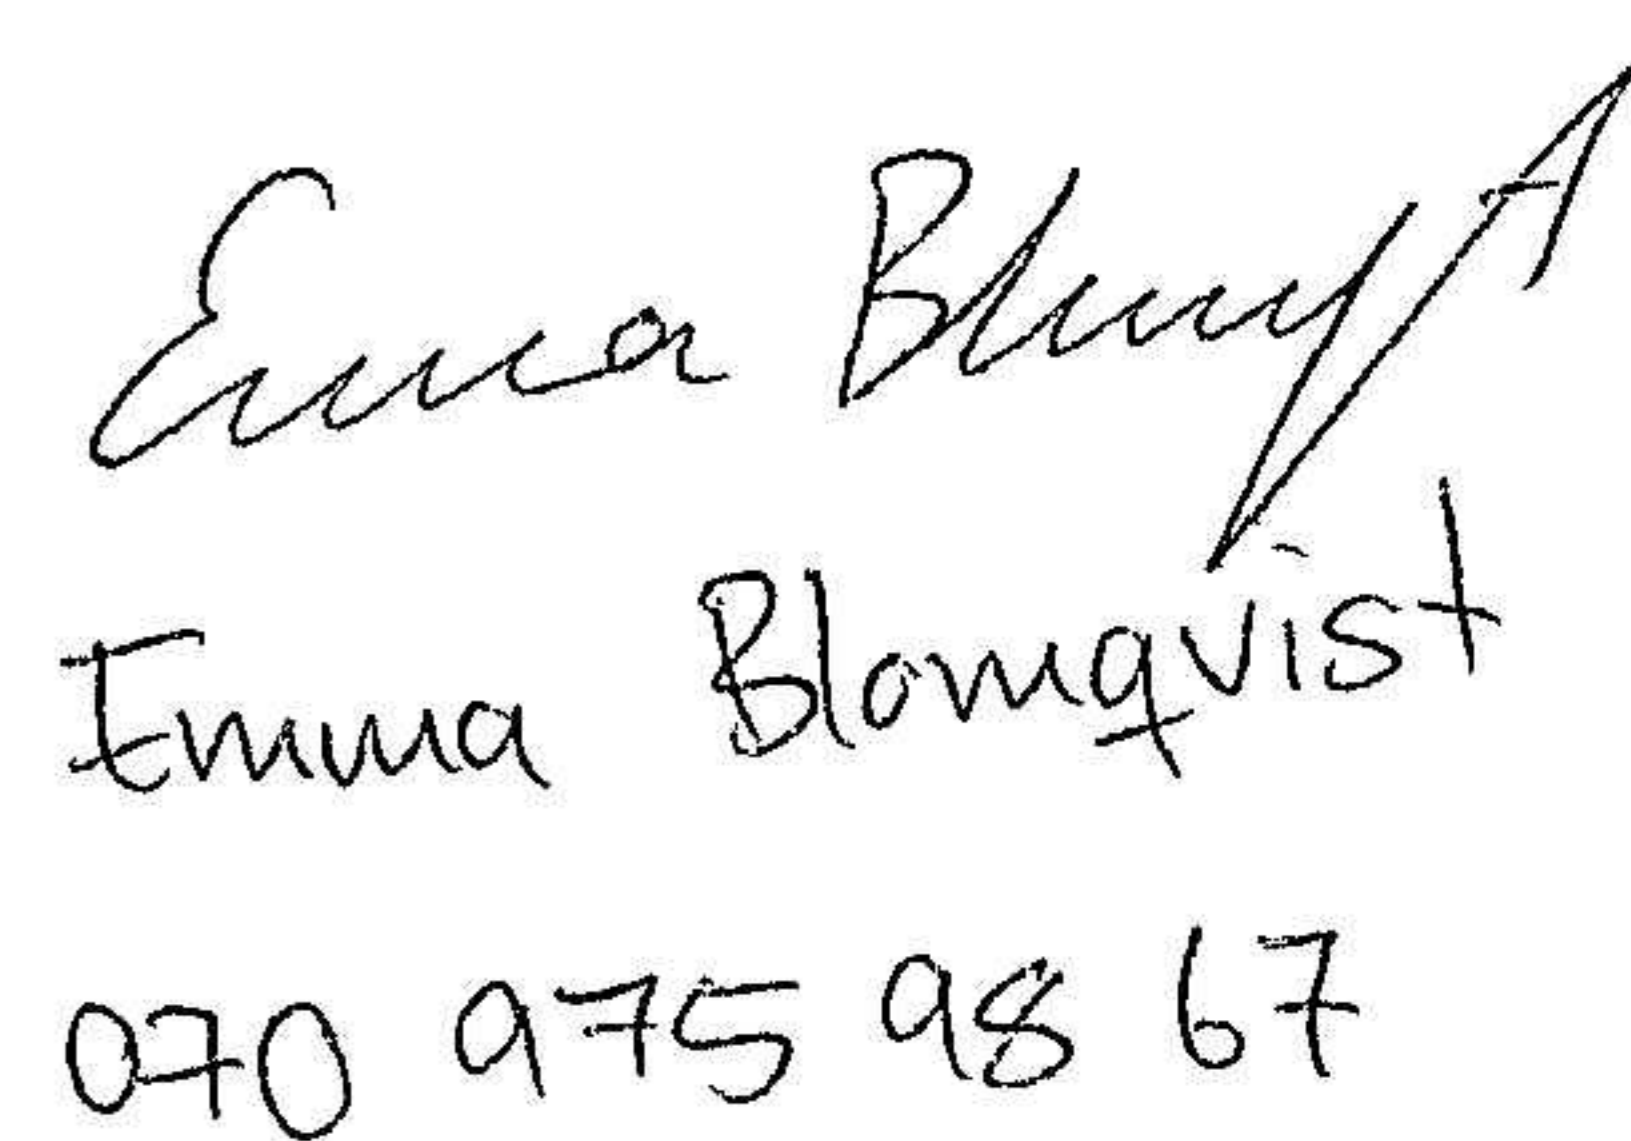 Emma Blomqvist
Emma Blomqvist
070 975 98 67